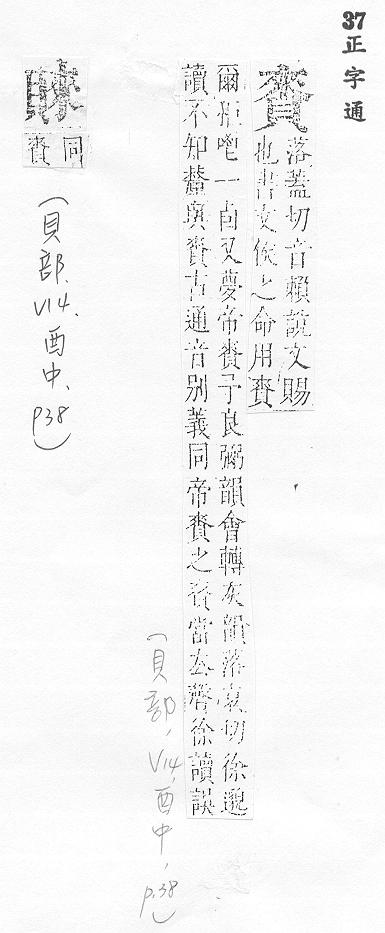 37正字通
賚
落蓋切音賴說文賜
也書文侯之命用賚
爾秬鬯一卣又夢帝賚予良弼韻會轉灰韻落哀切徐邈
讀不知釐與賚古通音別義同帝賚之賚當去聲徐讀誤
(貝部,V14,酉中,p.38)
䝶
同
賚
(貝部,V14,酉中,p38)